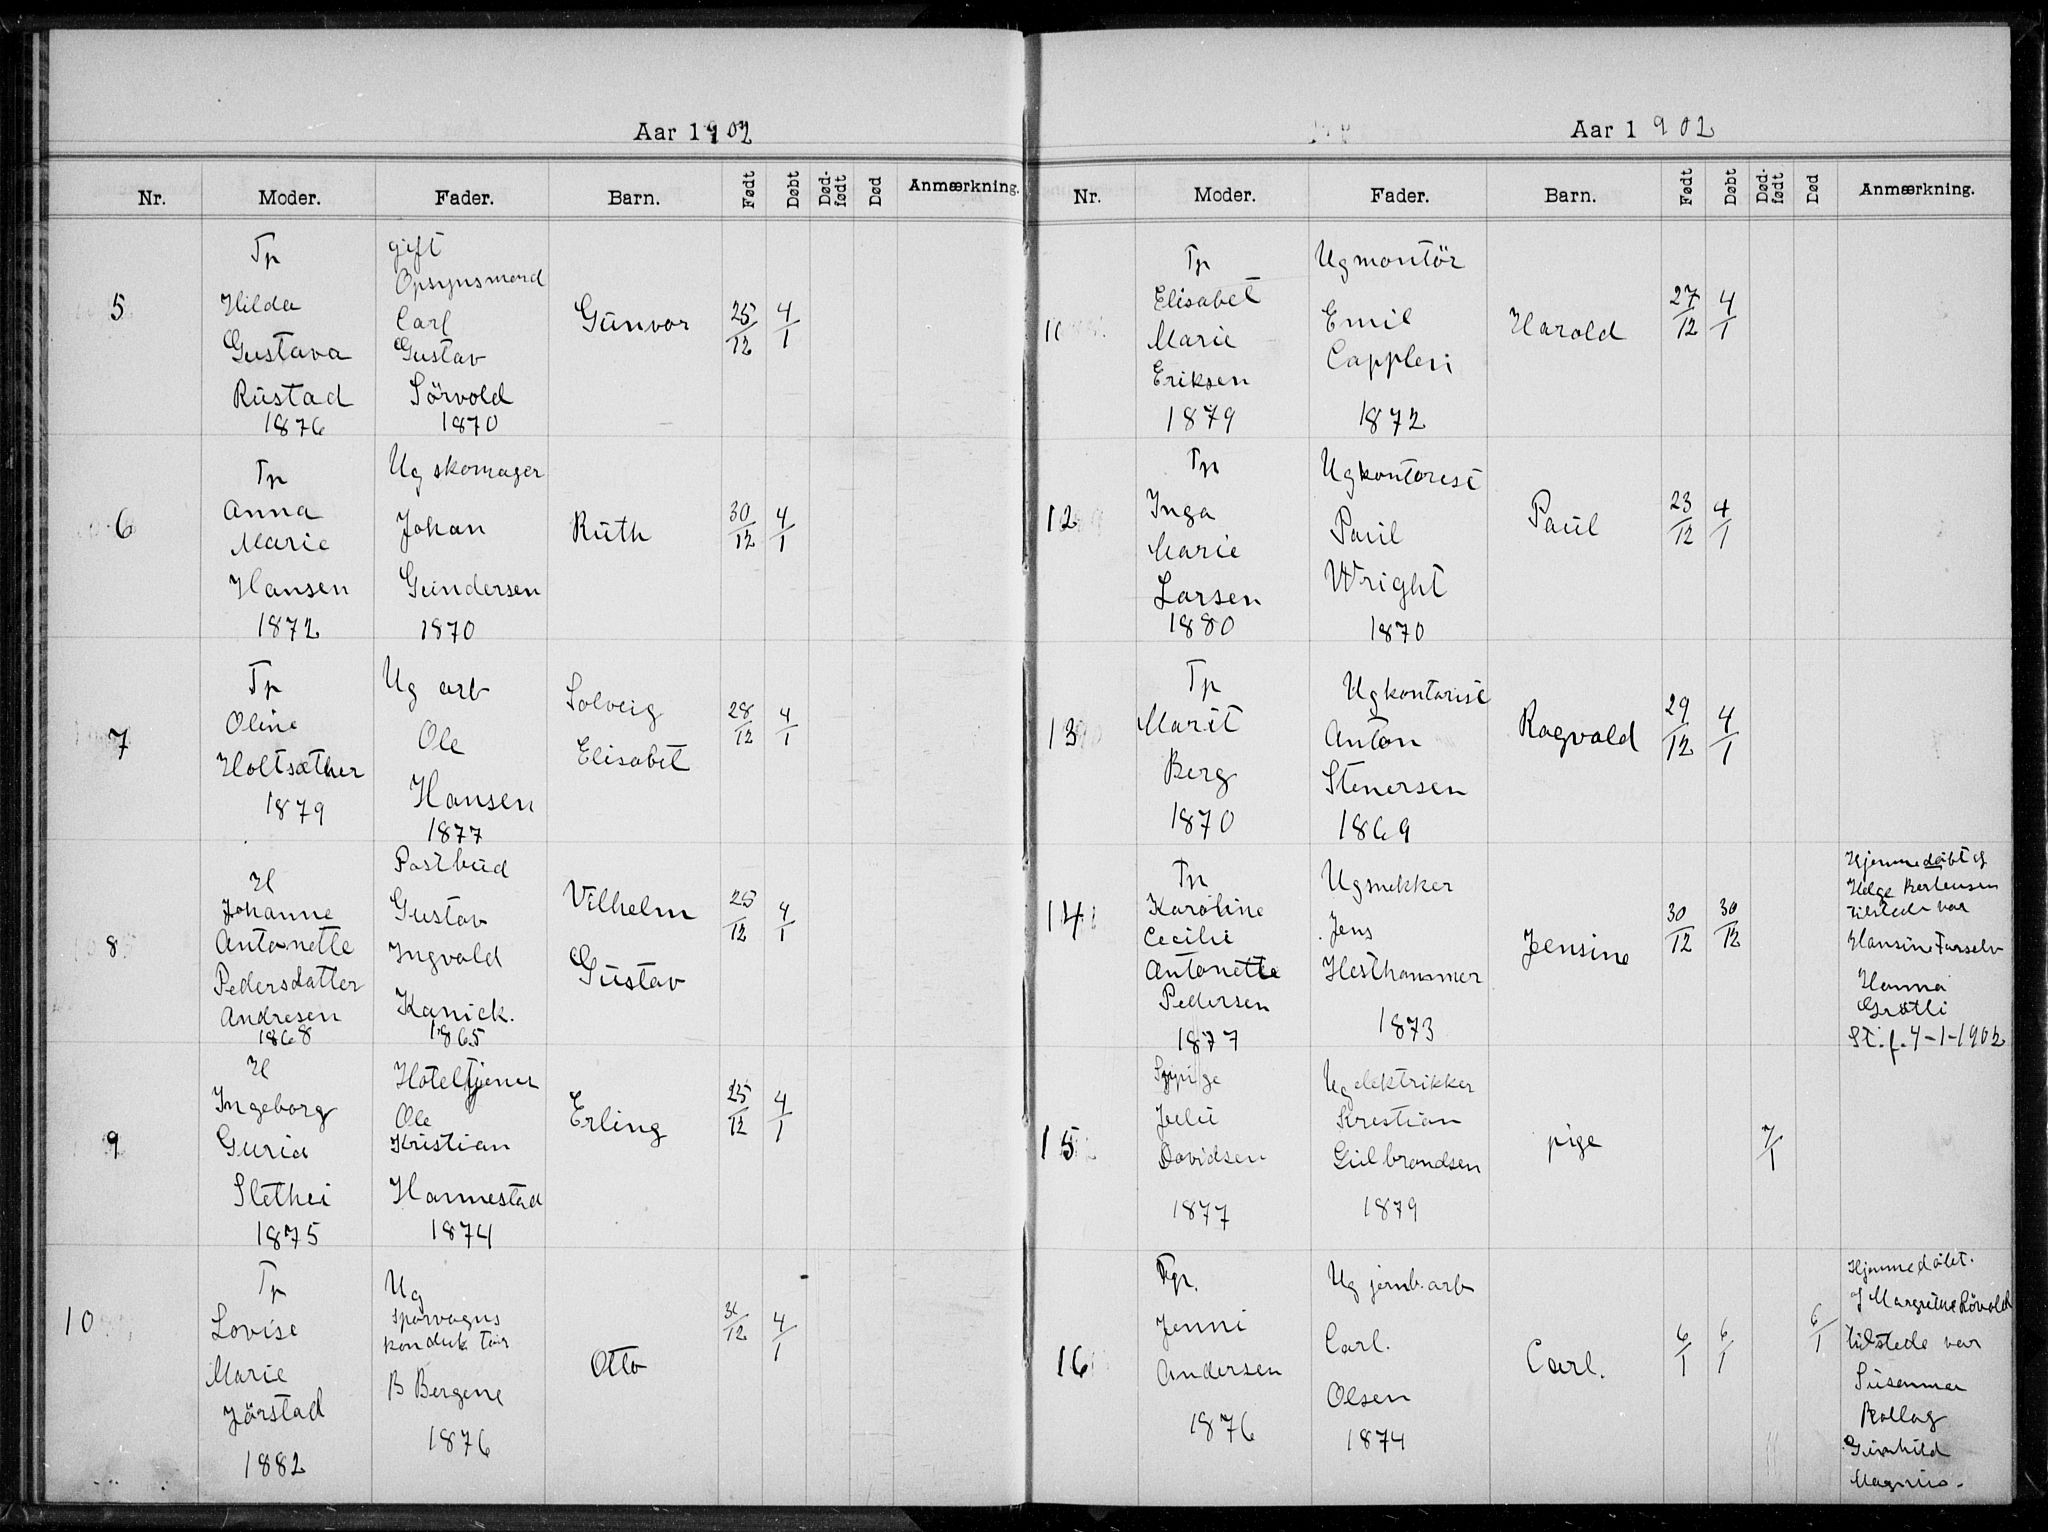 Aar 1902
Nr.
Moder.
Fader.
Barn.
Født
Døbt
Død-
født
Død
Anmærkning.
5
Tp
Hilda
Gustava
Rustad
1876
gift
Opsynsmand
Carl
Gustav
Sörvold
1870
Gunvor
25/12
4/1
6
Tp
Anna
Marie
Hansen
1872
Ug skomager
Johan
Gundersen
1870
Ruth
30/12
4/1
7
Tp
Oline
Holtsæther
1879
Ug arb
Ole
Hansen
1877
Solveig
Elisabet
28/12
4/1
8
H
Johanne
Antonette
Pedersdatter
Andresen
1868
Postbud
Gustav
Ingvald
Kanick.
1865
Vilhelm
Gustav
25/12
4/1
9
H
Ingeborg
Guria
Slethei
1875
Hoteltjener
Ole
Kristian
Hannestad
1874
Erling
25/12
4/1
10
Tp
Lovise
Marie
Jörstad
1882
Ug
sporvogns
konduktör
B Bergene
1876
Otto
4/1
Aar 1902
Nr.
Moder.
Fader.
Barn.
Født
Døbt
Død-
født
Død
Anmærkning.
11
Tp
Elisabet
Marie
Eriksen
1879
Ug montör
Emil
Cappleri
1872
Harald
27/12
4/1
12
Tp
Inga
Marie
Larsen
1880
Ug kontorist
Paul
Wright
1870
Paul
23/12
4/1
13
Tp
Marit
Berg
1870
Ug kontorist
Anton
Stenersen
1869
Ragvald
29/12
4/1
14
Tp
Karoline
Cecilie
Antonette
Pedersen
1877
Ug snekker
Jens
Hesthammer
1873
Jensine
30/12
30/12
Hjemmedöbt af
Helge Bertensen
tilstede var
Hansine
Hanna
Grötli
St. f. 4-1-1902
15
Sypige
Julie
Davidsen
1877
Ug elektrikker
Krestian
Gulbrandsen
1879
pige
7/1
16
Tp.
Jenni
Andersen
1876
Ug jernb. arb
Carl.
Olsen
1874
Carl.
6/1
6/1
6/1
Hjemmedöbt.
J Margrethe Rövold
tilstede var
Susanna
Rollag
Gunhild
Magnus.